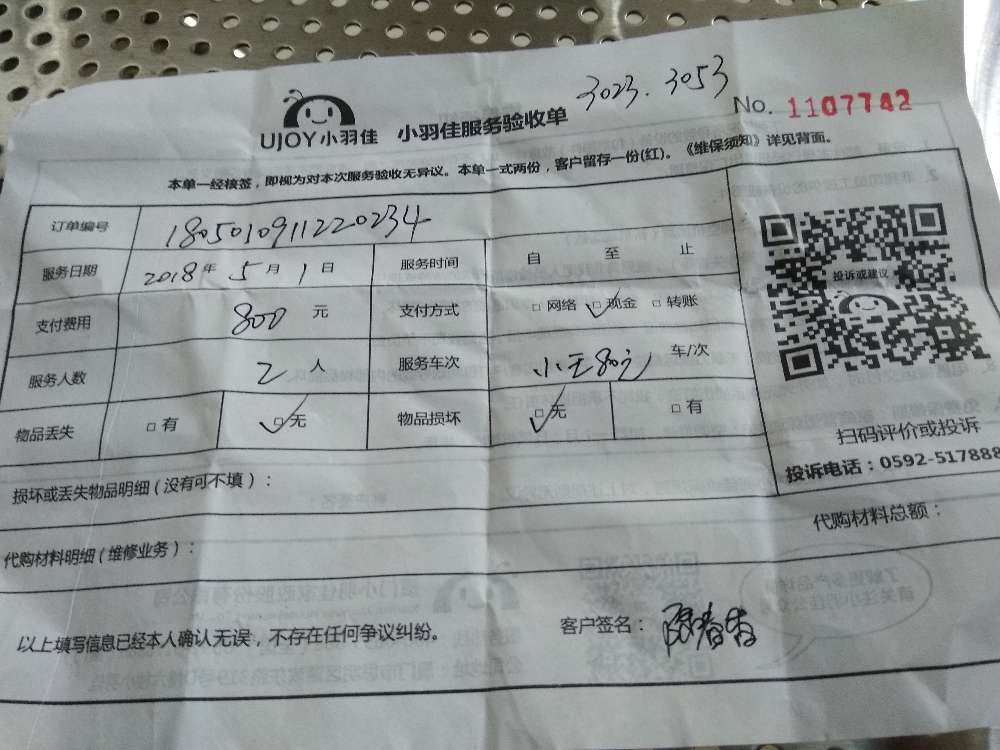 3023.3053
UJOY小羽佳 小羽佳服务验收单 No. 1107742
本单一经核签，即视为对本次服务验收无异议。本单一式两份，客户留存一份(红)。《维保须知》详见背面。
订单编号 1805010911220234
服务日期 2018年5月1日 服务时间 自 至 止
投诉或建议
支付费用 800 元 支付方式 □网络 ☑现金 □转账
服务人数 2 人 服务车次 车/次
物品丢失 □有 ☑无 物品损坏 ☑无 □有
扫码评价或投诉
投诉电话：0592-517888
损坏或丢失物品明细(没有可不填)：
代购材料明细(维修业务)： 代购材料总额：
以上填写信息已经本人确认无误，不存在任何争议纠纷。 客户签名：